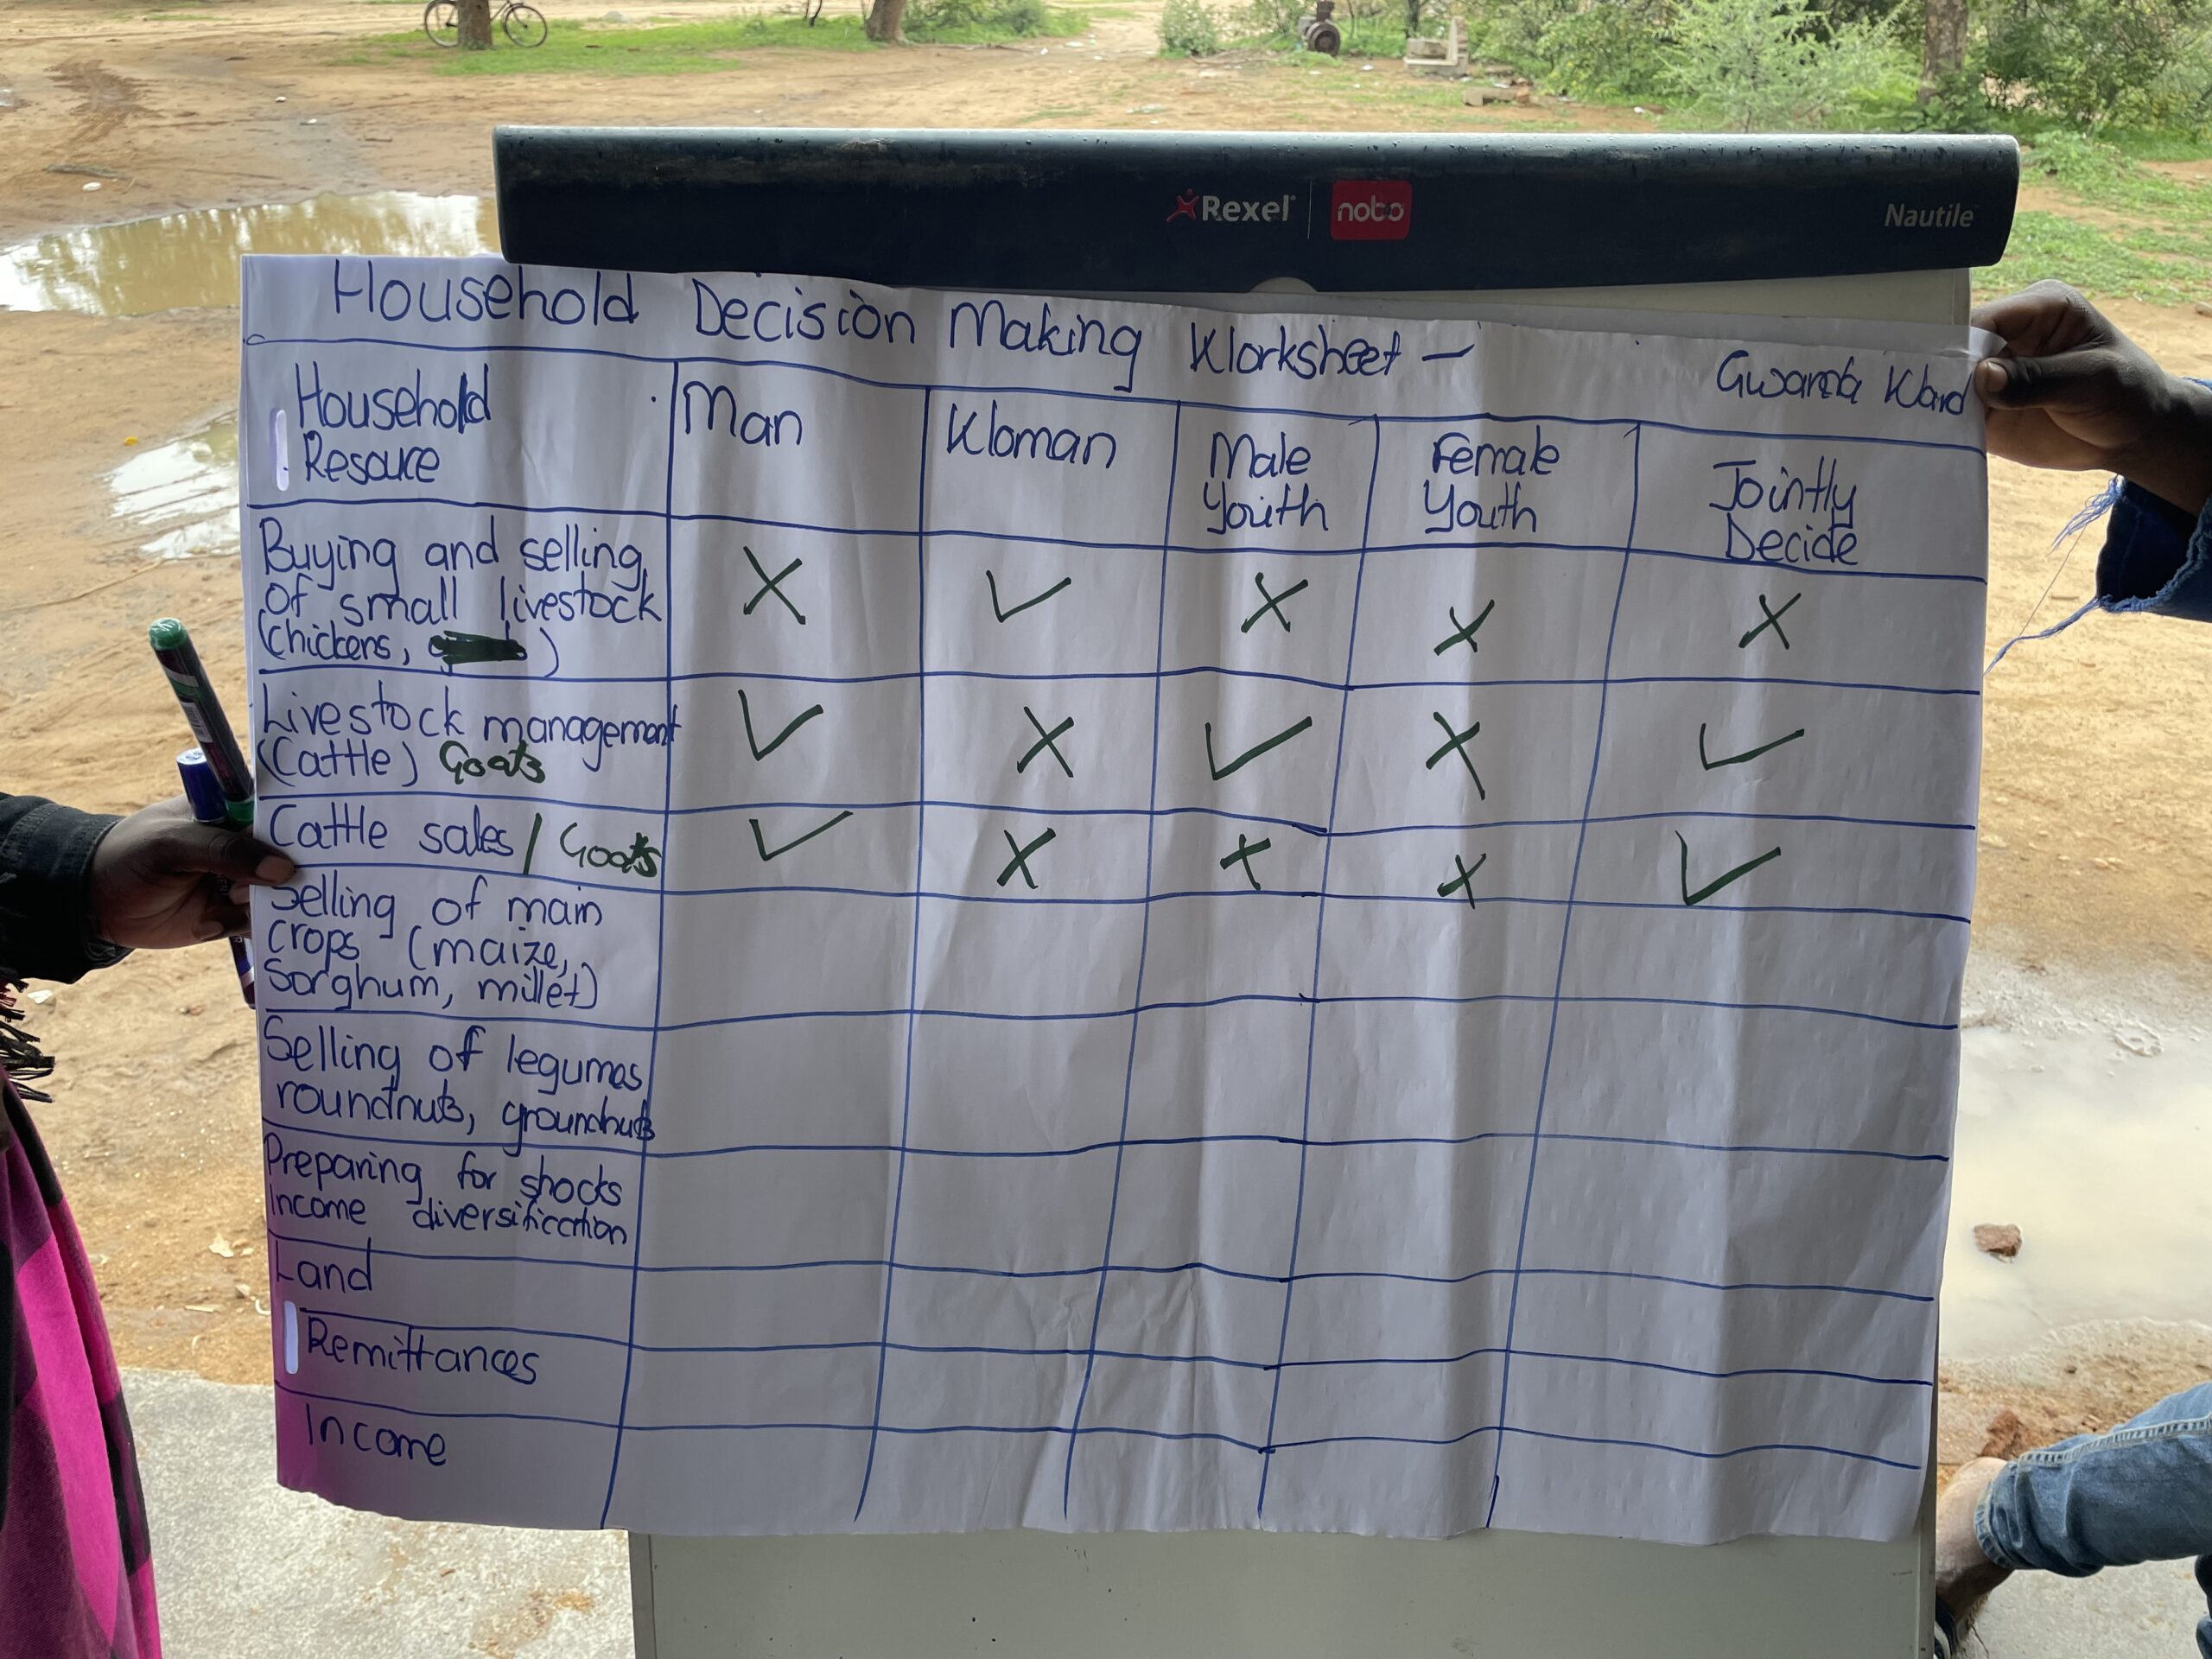 Rexel nobo Nautile
Household Decision Making Worksheet — Gwanda Ward
Household
Resource
Man
Woman
Male
Youth
Female
Youth
Jointly
Decide
Buying and selling
of small livestock
(chickens, )
X ✓ X X X
Livestock management
(Cattle) Goats
✓ X ✓ X ✓
Cattle sales / Goats
✓ X X X ✓
Selling of main
crops (maize,
sorghum, millet)
Selling of legumes
roundnuts, groundnuts
Preparing for shocks
income diversification
Land
Remittances
Income